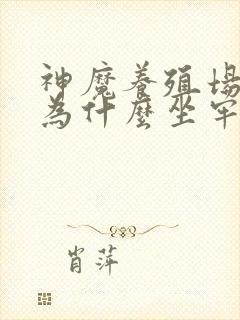 神魔養殖場
為什麼坐牢
肖萍